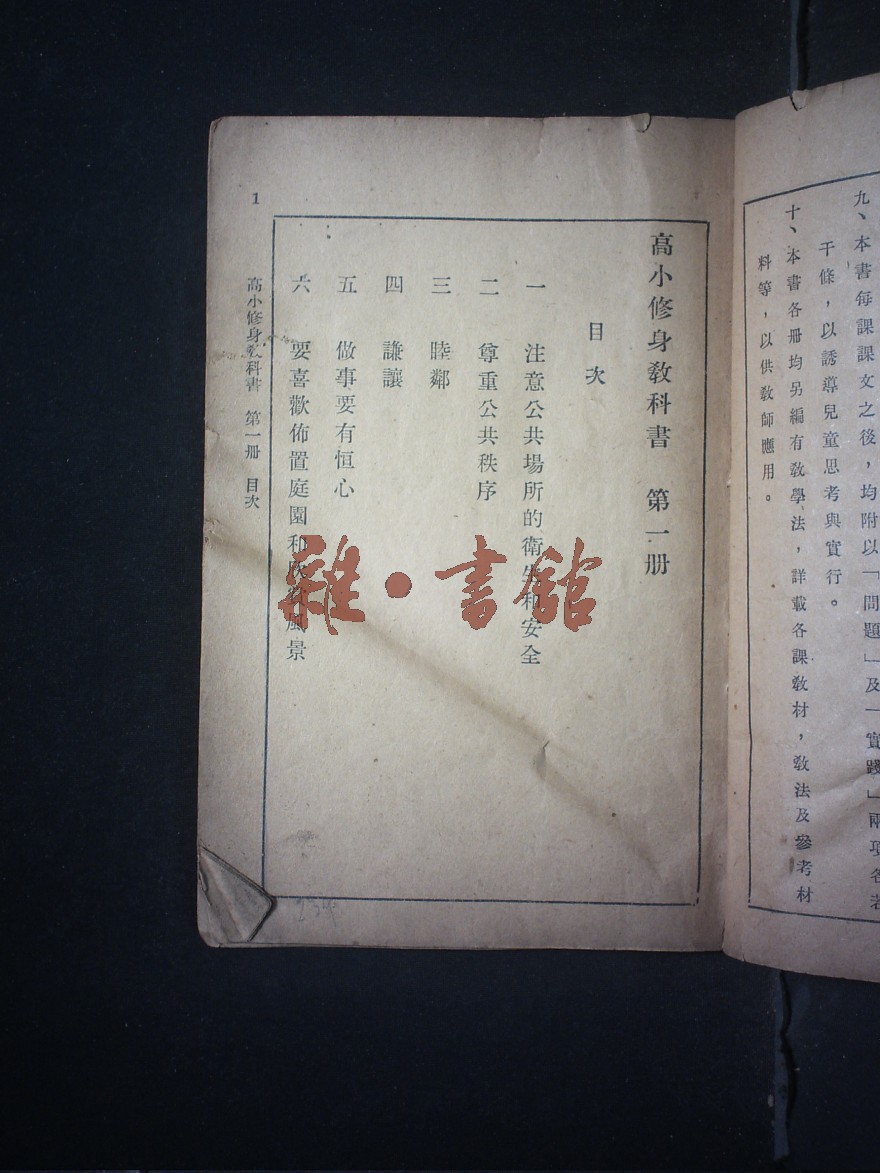 九、本書每課課文之後，均附以「問題」及「實踐」兩項各若
干條，以誘導兒童思考與實行。
十、本書各册均另編有教學法，詳載各課教材，教法及參考材
料等，以供教師應用。
高小修身教科書 第一册
目次
一 注意公共場所的衛生和安全
二 尊重公共秩序
三 睦鄰
四 謙讓
五 做事要有恒心
六 要喜歡佈置庭園和 風景
高小修身教科書 第一册 目次
1
雜·書館